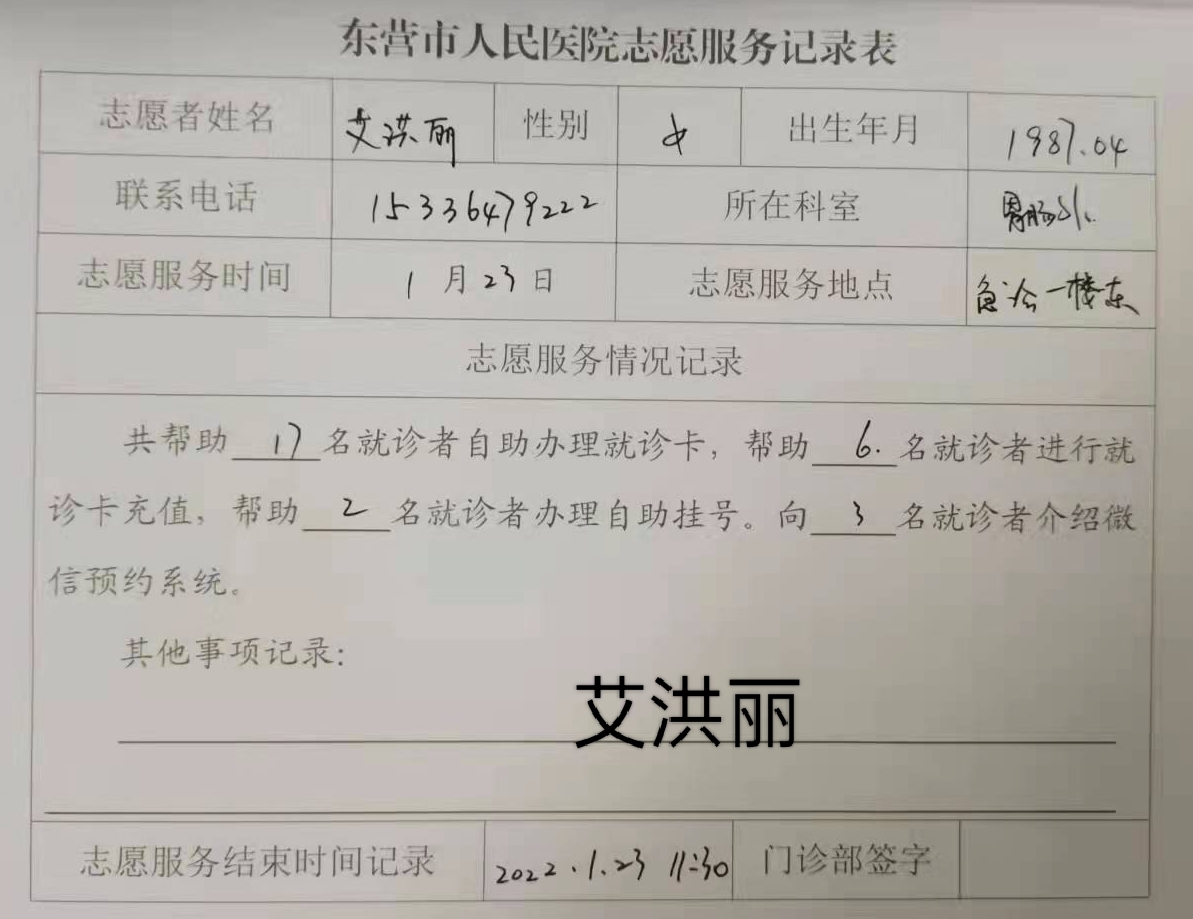 东营市人民医院志愿服务记录表
志愿者姓名 艾洪丽 性别 女 出生年月 1987.04
联系电话 15336479222 所在科室 胃肠外
志愿服务时间 1月23日 志愿服务地点 急诊一楼东
志愿服务情况记录
共帮助 17 名就诊者自助办理就诊卡，帮助 6. 名就诊者进行就
诊卡充值，帮助 2 名就诊者办理自助挂号。向 3 名就诊者介绍微
信预约系统。
其他事项记录：
艾洪丽
志愿服务结束时间记录 2022.1.23 11:30 门诊部签字